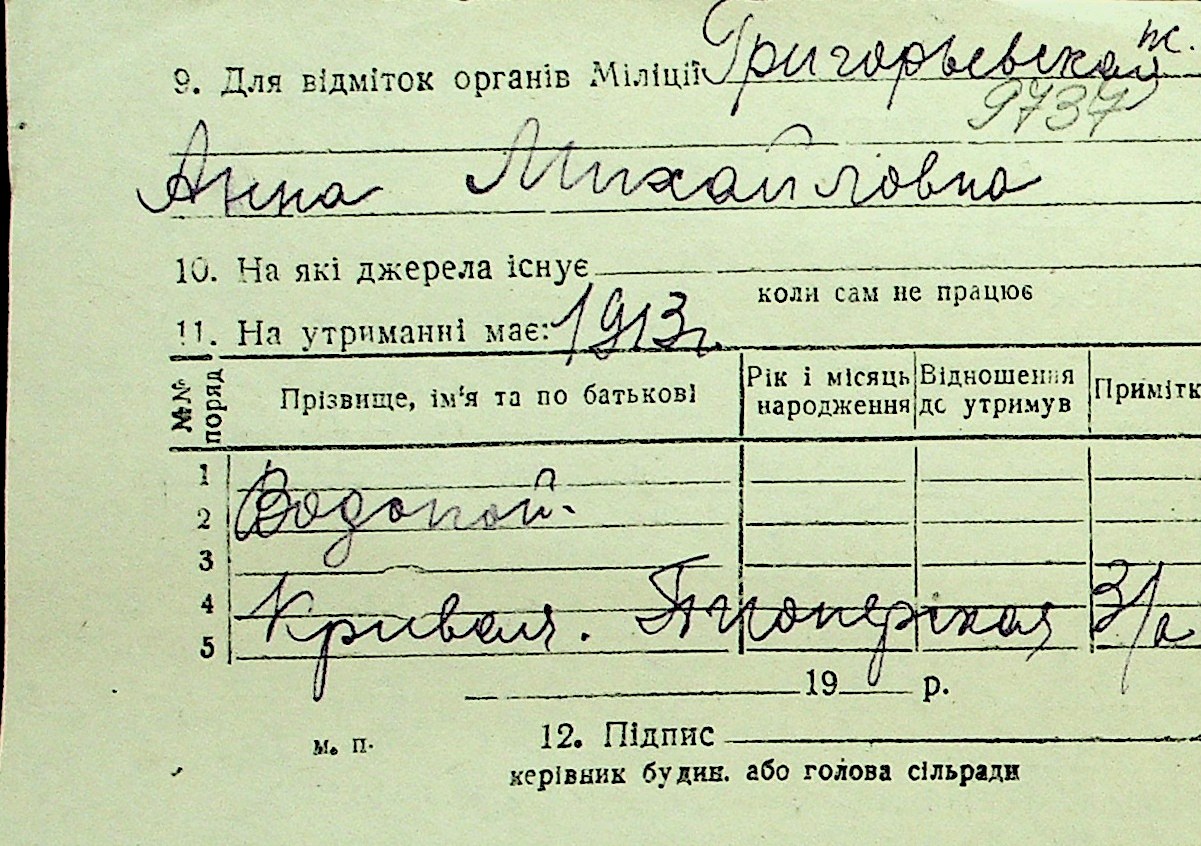 ж.
9. Для відміток органів Міліції Григорьевская
9737
Анна Михайловна
10. На які джерела існує
коли сам не працює
11. На утриманні має: 1913г.
№№ поряд
Прізвище, ім'я та по батькові
Рік і місяць народження
Відношення до утримув
Примітк
1
2 Водопой.
3
4 Кривая. Пионерская 3/а
5
19 р.
м. п.
12. Підпис
керівник будин. або голова сільради